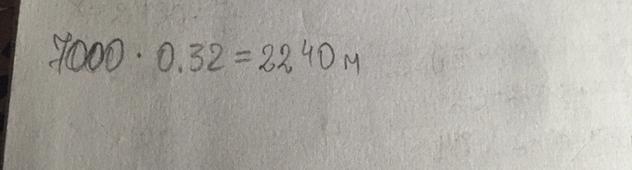 7000 · 0.32 = 2240 м